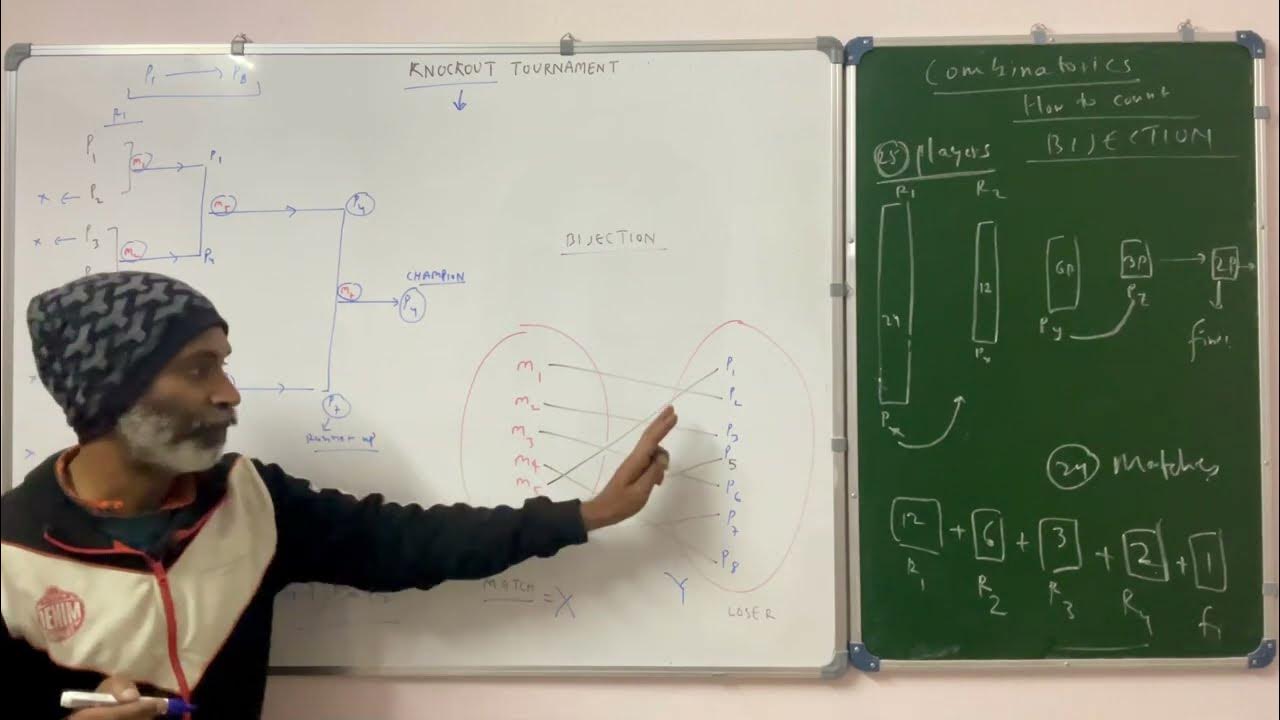 P₁ → P₈
KNOCKOUT TOURNAMENT
↓
R₁
P₁
m₁ → P₁
x ← P₂
m₅ → P₄
x ← P₃
m₂ → P₄
CHAMPION
m₇ → P₄
P₇
RUNNER UP
BIJECTION
m₁
m₂
m₃
m₄
m₅
P₁
P₂
P₃
P₅
P₆
P₇
P₈
MATCH = X
Y
LOSER
DENIM
Combinatorics
How to count
BIJECTION
25 players
R₁ R₂
24 12 6P 3P → 2P →
Pₓ Pₓ Py Pz
24 Matches
12 + 6 + 3 + 2 + 1
R₁ R₂ R₃ R₄